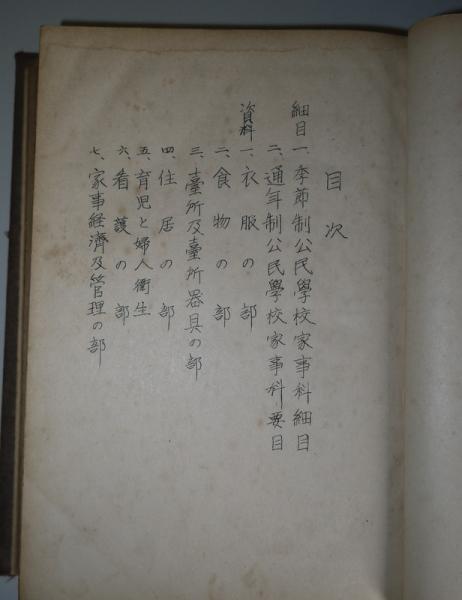 目次
細目 一、季節制公民學校家事科細目
二、通年制公民學校家事科要目
資料 一、衣服の部
二、食物の部
三、臺所及臺所器具の部
四、住居の部
五、育児と婦人衛生
六、看護の部
七、家事経濟及管理の部